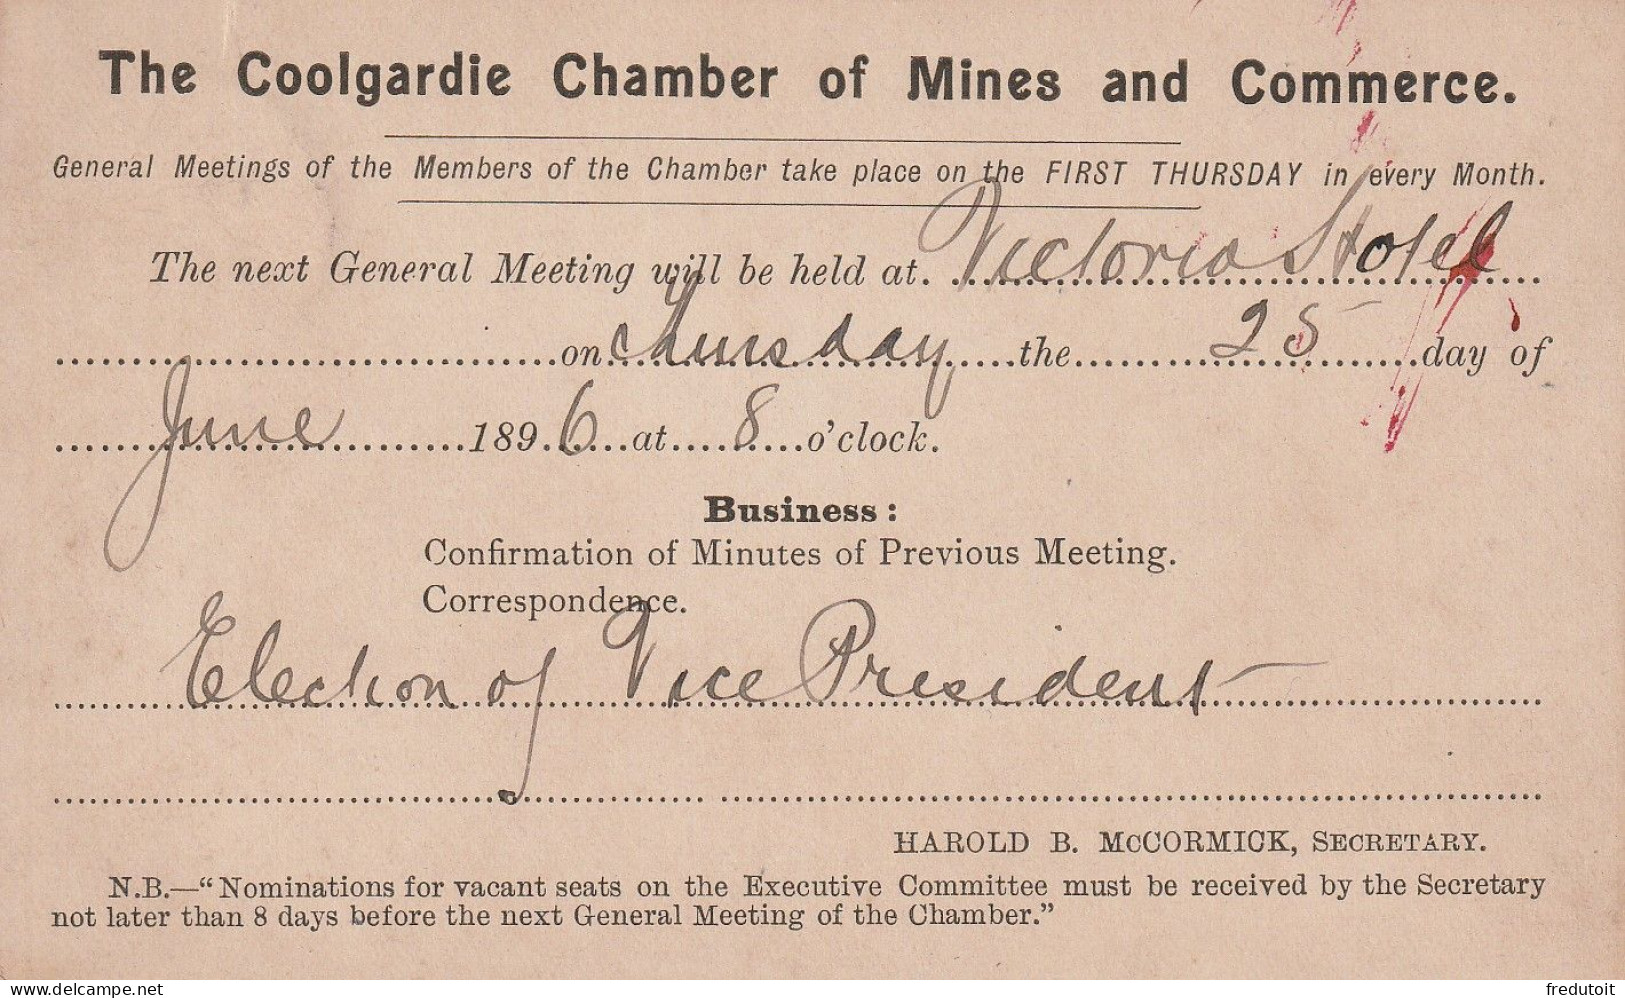 The Coolgardie Chamber of Mines and Commerce.
General Meetings of the Members of the Chamber take place on the FIRST THURSDAY in every Month.
The next General Meeting will be held at. Victoria Hotel
on thursday the 25 day of
June 1896 at 8 o'clock.
Business:
Confirmation of Minutes of Previous Meeting.
Correspondence.
Election of Vice President
HAROLD B. McCORMICK, SECRETARY.
N.B.—"Nominations for vacant seats on the Executive Committee must be received by the Secretary
not later than 8 days before the next General Meeting of the Chamber."
www.delcampe.net
fredutoit